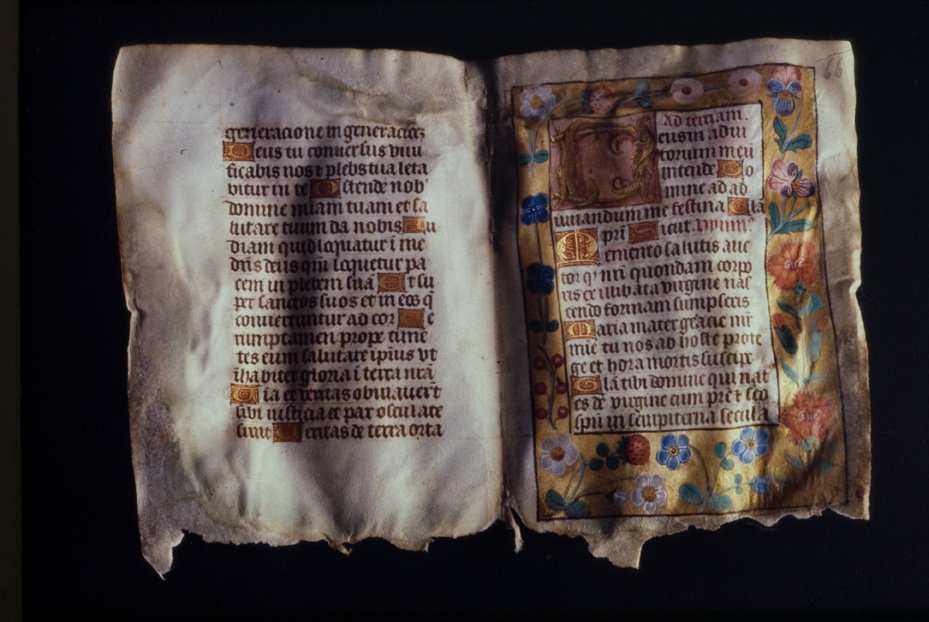 generacione in generacionē
Deus tu conuersus viui
ficabis nos et plebs tua leta
bitur in te Ostende nob'
domine mīam tuam et sa
lutare tuum da nobis Au
diam quid loquatur ī me
dn̄s deus qm̄ loquetur pa
cem in plebem suā Et su
per sanctos suos et in eos q̄
conuertuntur ad cor Ue
rumptamen prope timē
tes eum salutare ipsius vt
īhabitet gloria ī terra nrā
Mīa et veritas obviauerūt
sibi iusticia et pax osculate
sunt Ueritas de terra orta
66
Ad terciam.
Deus in adiu
torium meū
intende Do
mine ad ad
iuuandum me festina Glā
pr̄i Sicut. ypnus
Memento salutis auc
tor q' nr̄i quondam corpo
ris ex illibata virgine nas
cendo formam sumpseris
Maria mater gracie mr̄
mie tu nos ab hoste prote
ge et hora mortis suscipe
Glā tibi domine qui nat'
es de virgine cum pr̄e et sc̄o
sp̄u in sempiterna secula